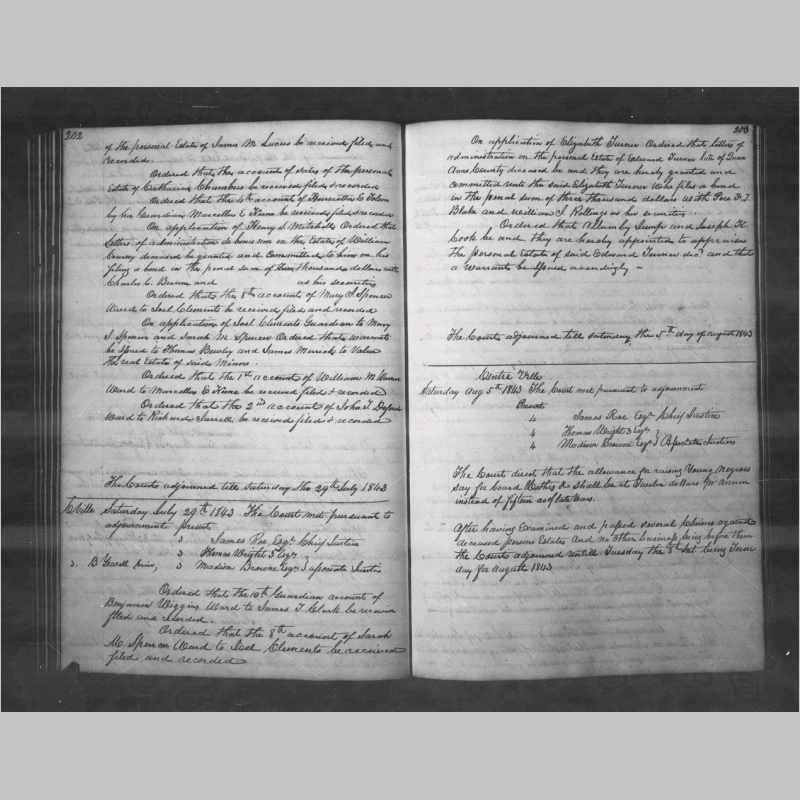 202
of the personal Estate of James M Lucus be received filed and
recorded.
Ordered that the account of sales of the personal
Estate of Catharine Chambers be received filed & recorded
Ordered that the 4th account of Henrietta E
by her Guardian Marcellus E Keene be received filed & recorded
On application of Henry S. Mitchell Ordered that
letters of administration de bonis non on the Estate of William
deceased be granted and committed to him on his
filing a bond in the penal sum of thousand dollars with
Charles C. and as his securities
Ordered that the 8th account of Mary S. Spencer
Ward to Joel Clements be received filed and recorded
On application of Joel Clements Guardian to Mary
S. Spencer and Sarah M Spencer Ordered that warrants
be issued to Thomas and James Merick to Value
the real Estate of said Minors.
Ordered that the 1st account of William M
Ward to Marcellus E Keene be received filed & recorded
Ordered that the 2nd account of John T.
Ward to Richard be received filed & recorded
The Court adjourned till Saturday the 29th July 1843
CVille Saturday July 29th 1843 The Court met pursuant to
adjournment present
3 James Roe Esqr Chief Justice
3 Thomas Wright 3 Esqr
3. B 3 Madison Browne Esqr Associate Justices
Ordered that the 10th Guardian account of
Benjamin Wiggins Ward to James T. Clark be received
filed and recorded.
Ordered that the 8th account of Sarah
M. Spencer Ward to Joel Clements be received
filed and recorded
203
On application of Elizabeth Turner Ordered that letters of
administration on the personal Estate of Edward Turner late of Queen
Anns County deceased be and they are hereby granted and
committed unto the said Elizabeth Turner who files a bond
in the penal sum of three thousand dollars with
Blake and William J. as her securities.
Ordered that Allenby Jump and Joseph H.
Cook be and they are hereby appointed to appraise
the personal Estate of said Edward Turner decd and that
a warrant be issued accordingly
The Court adjourned till saturday the 5th day of august 1843
Centre Ville
Saturday Aug 5th 1843 The Court met pursuant to adjournment
Present
4 James Roe Esqr Chief Justice
4 Thomas Wright 3 Esqr
4 Madison Browne Esqr Associate Justices
The Court direct that the allowance for raising Young Negroes
say for board Clothes &c shall be at Twelve dollars pr annum
instead of fifteen as of late years.
After having Examined and passed several claims against
deceased persons Estates and no other business being before them
the Court adjourned until Tuesday the 8th Inst being Term
day for August 1843